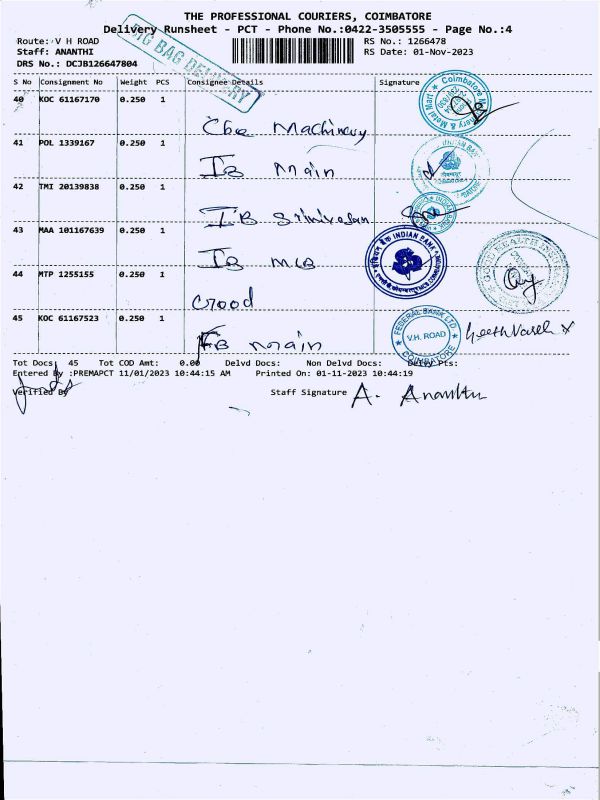 THE PROFESSIONAL COURIERS, COIMBATORE
Delivery Runsheet - PCT - Phone No.:0422-3505555 - Page No.:4
Route: V H ROAD RS No.: 1266478
Staff: ANANTHI RS Date: 01-Nov-2023
DRS No.: DCJB126647804
BIG BAG DELIVERY
S No Consignment No Weight PCS Consignee Details Signature
40 KOC 61167170 0.250 1
Cbe Machinery
Coimbatore Machinery & Metal Mart
41 POL 1339167 0.250 1
IB Main
INDIAN BANK
42 TMI 20139838 0.250 1
IB Srinivasan
43 MAA 101167639 0.250 1
IB MCB
INDIAN BANK
44 MTP 1255155 0.250 1
Crood
45 KOC 61167523 0.250 1
FB main
FEDERAL BANK LTD
V.H. ROAD
COIMBATORE
Tot Docs: 45 Tot COD Amt: 0.00 Delvd Docs: Non Delvd Docs: Delvy Pts:
Entered By :PREMAPCT 11/01/2023 10:44:15 AM Printed On: 01-11-2023 10:44:19
Verified By Staff Signature A. Ananthi